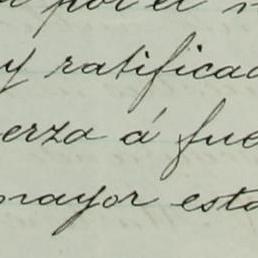 por el
y ratificad
erza á fue
mayor esta